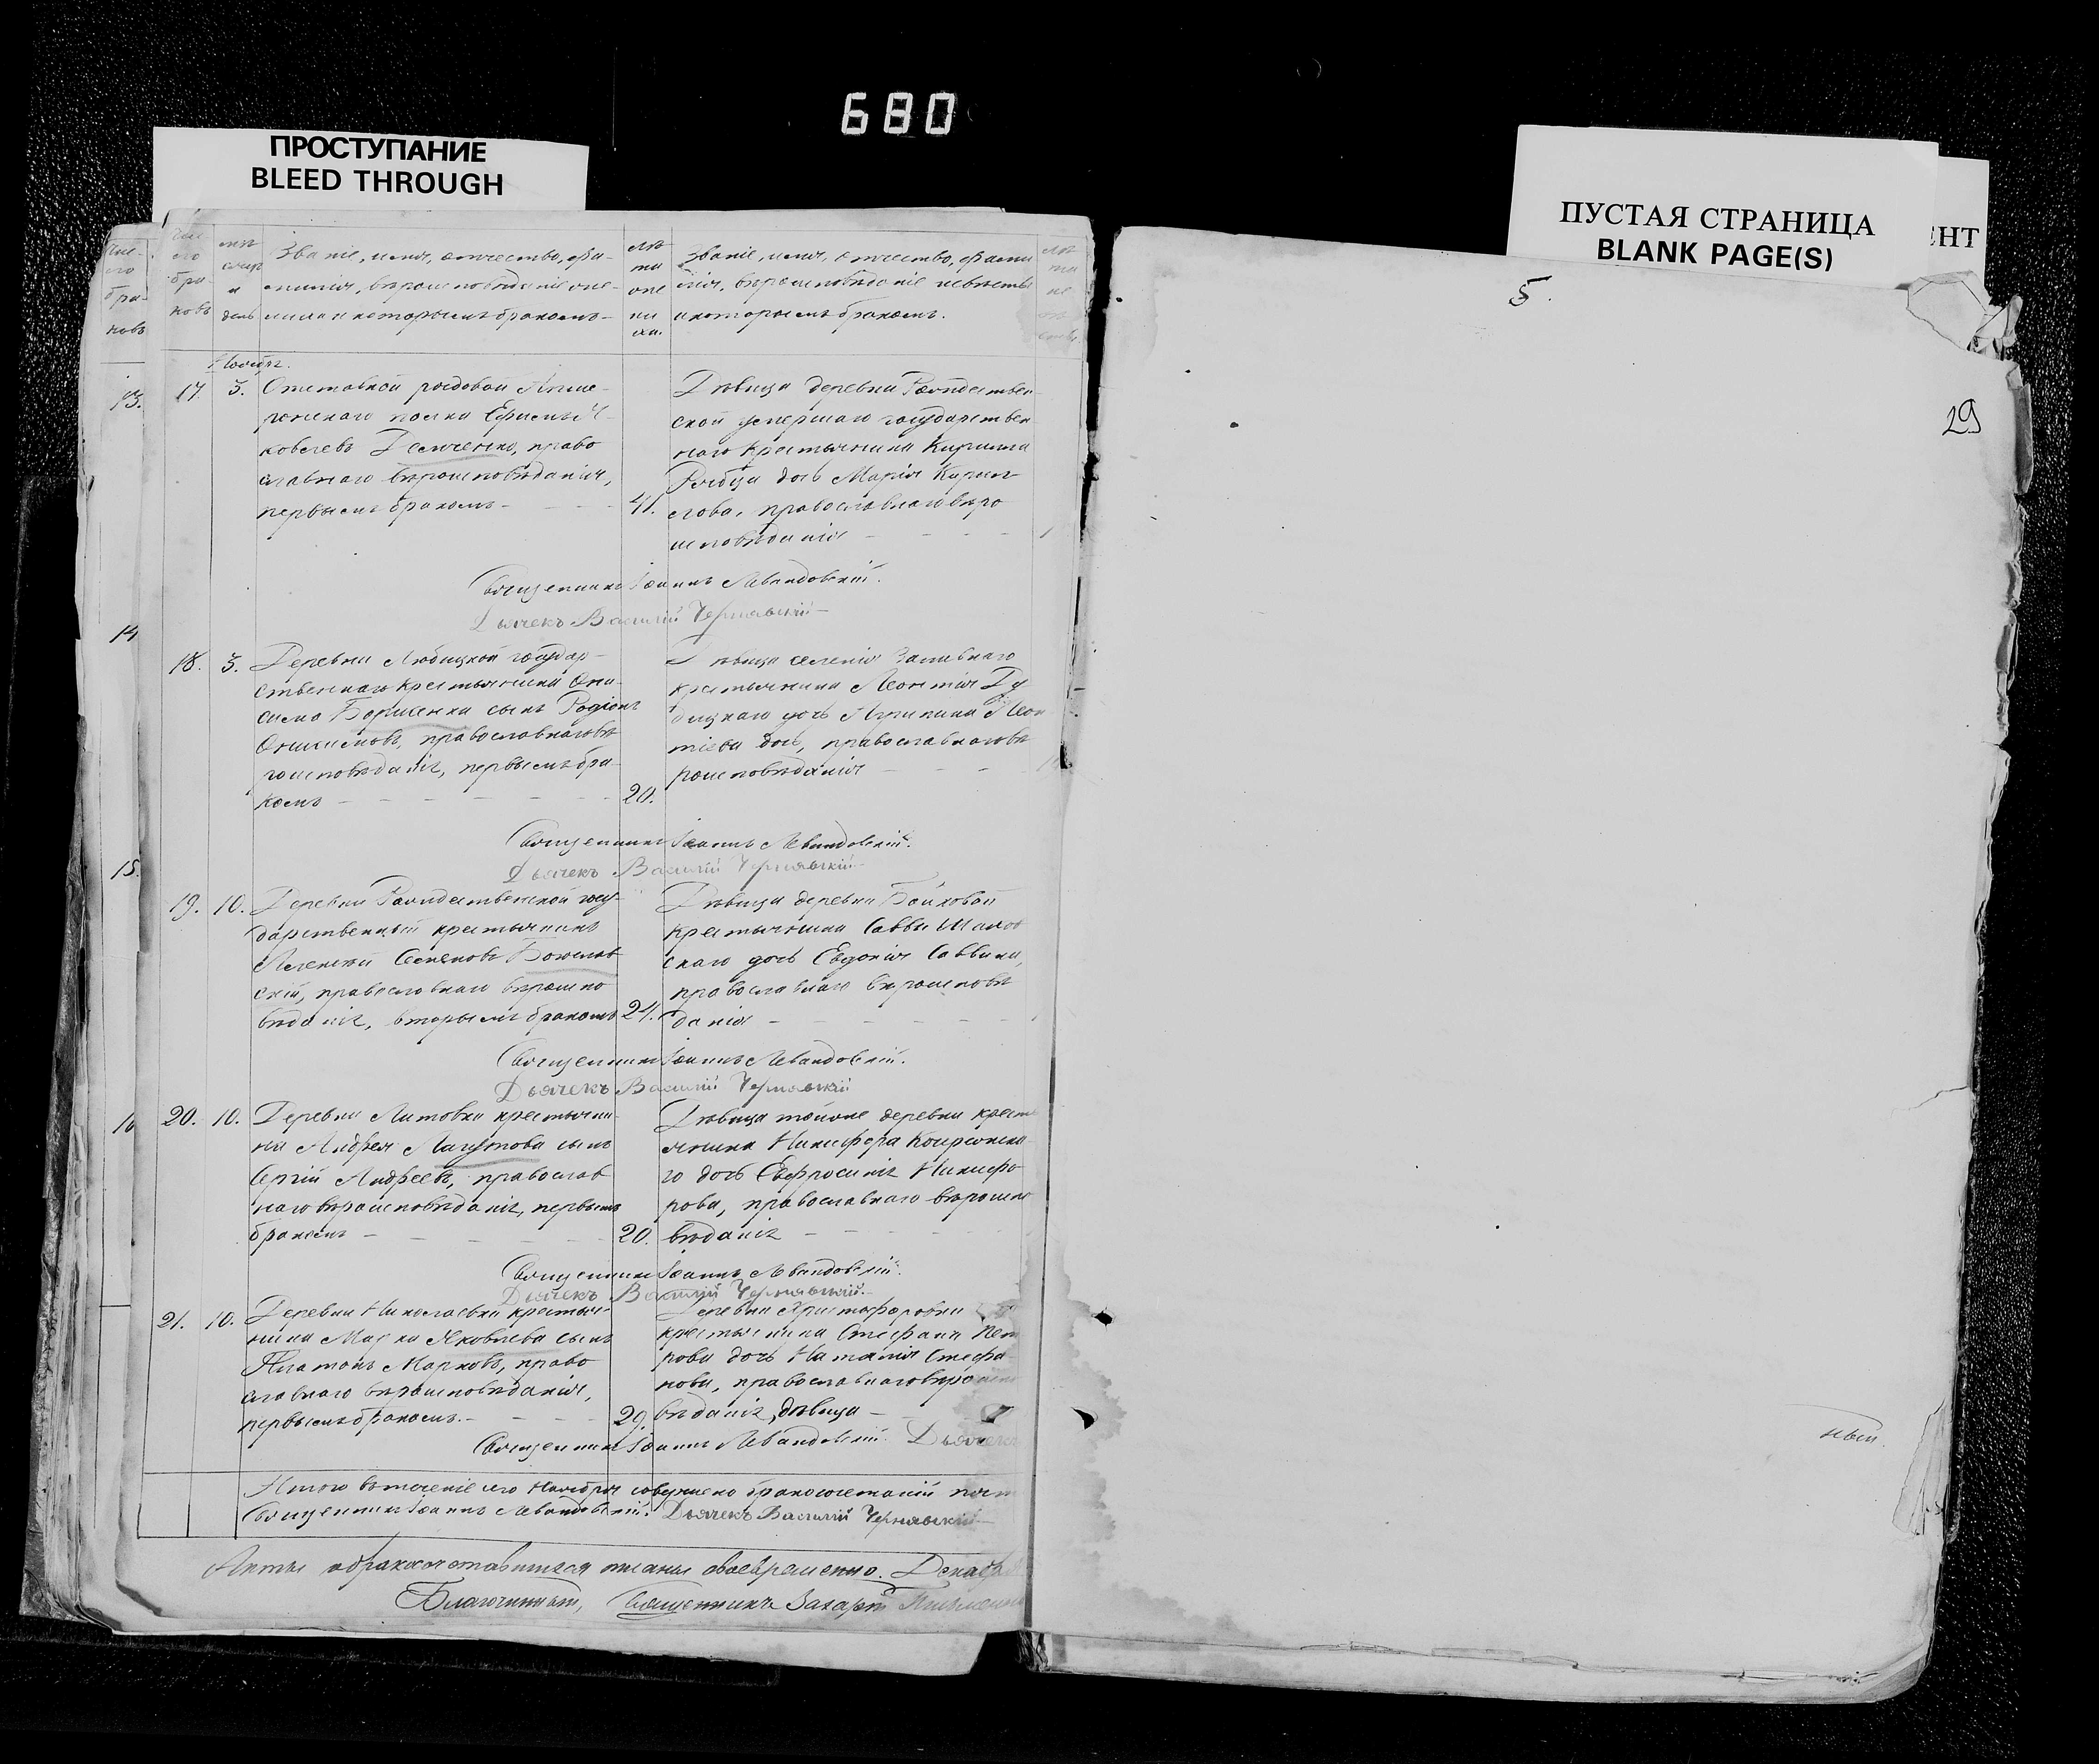 680
ПРОСТУПАНИЕ
BLEED THROUGH
ПУСТАЯ СТРАНИЦА
BLANK PAGE(S)
НТ
5.
29
Званіе, имя, отчество, фа-
милія, вѣроисповѣданіе же-
ниха и которымъ бракомъ
лѣ
та
же
ни
ха.
Званіе, имя, отчество, фами
лія, вѣроисповѣданіе невѣсты
и которымъ бракомъ.
Ноябрь.
13.
17. 3. Отставной рядовой
полка Ефимъ Я-
ковлевъ Демченко, право
славнаго вѣроисповѣданія,
первымъ бракомъ - - - 41.
Дѣвица деревни Рождествен
ской умершаго государствен
наго крестьянина Кирилла
дочь Марія Кирил
лова, православнаго вѣро
исповѣданія - - - -
Священникъ Іоаннъ Левандовскій.
Дьячекъ Василій Чернявскій
14
18. 3. Деревни Любицкой государ-
ственнаго крестьянина Они-
сима Борисенка сынъ Родіонъ
Онисимовъ, православнаго вѣ
роисповѣданія, первымъ бра-
комъ - - - - - - 20.
Дѣвица селенія Заливнаго
крестьянина Леонтія
дочь Агрипина Леон
тіева дочь, православнаго вѣ
роисповѣданія - - -
Священникъ Іоаннъ Левандовскій.
Дьячекъ Василій Чернявскій
15.
19. 10. Деревни Рождественской госу-
дарственный крестьянинъ
Алексѣй Семеновъ
скій, православнаго вѣроиспо
вѣданія, вторымъ бракомъ 24.
Дѣвица деревни Бойковой
крестьянина Саввы
скаго дочь Евдокія Саввина,
православнаго вѣроисповѣ
данія - - - - - -
Священникъ Іоаннъ Левандовскій.
Дьячекъ Василій Чернявскій
16
20. 10. Деревни Литовки крестьяни-
на Андрея Лагутова сынъ
Сергій Андреевъ, православ
наго вѣроисповѣданія, первымъ
бракомъ - - - - - 20.
Дѣвица тойже деревни крест
янина Никифора
го дочь Евфросинія Никифо
рова, православнаго вѣроиспо
вѣданія - - -
Священникъ Іоаннъ Левандовскій.
Дьячекъ Василій Чернявскій.
21. 10. Деревни Николаевки крестья-
нина Марка Яковлева сынъ
Платонъ Марковъ, право
славнаго вѣроисповѣданія,
первымъ бракомъ. - - - 29.
Деревни Христофоровки
крестьянина Стефана Пет
рова дочь Наталія Стефа-
нова, православнаго вѣроиспо
вѣданія, дѣвица -
Священникъ Іоаннъ Левандовскій. Дьячекъ
Итого въ теченіе сего Ноября совершено бракосочетаній пять
Священникъ Іоаннъ Левандовскій. Дьячекъ Василій Чернявскій
Акты о бракосочетавшихся писаны своевременно. Декабря
Благочинный, Священникъ Захарій